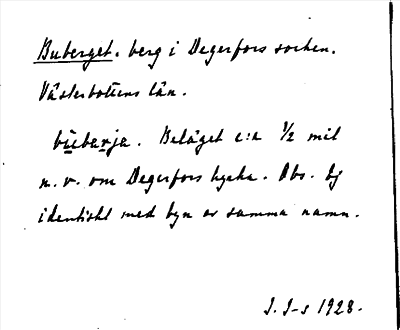 Buberget. berg i Degerfors socken.
Västerbottens län.
bu̱beṟja. Beläget c:a 1/2 mil
n.v. om Degerfors kyrka. Obs. ej
identiskt med byn av samma namn.
J. J-s 1928.